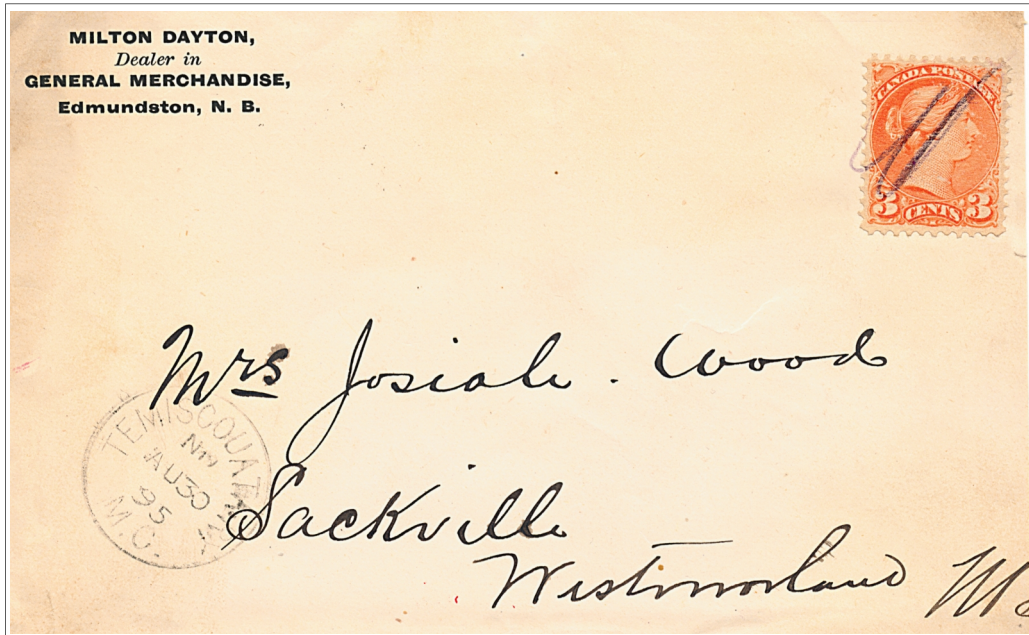 MILTON DAYTON,
Dealer in
GENERAL MERCHANDISE,
Edmundston, N. B.
CANADA POSTAGE
3 CENTS 3
Mrs Josiah. Wood
TEMISCOUATA
AU 30
95
M.C.
Sackville
Westmorland